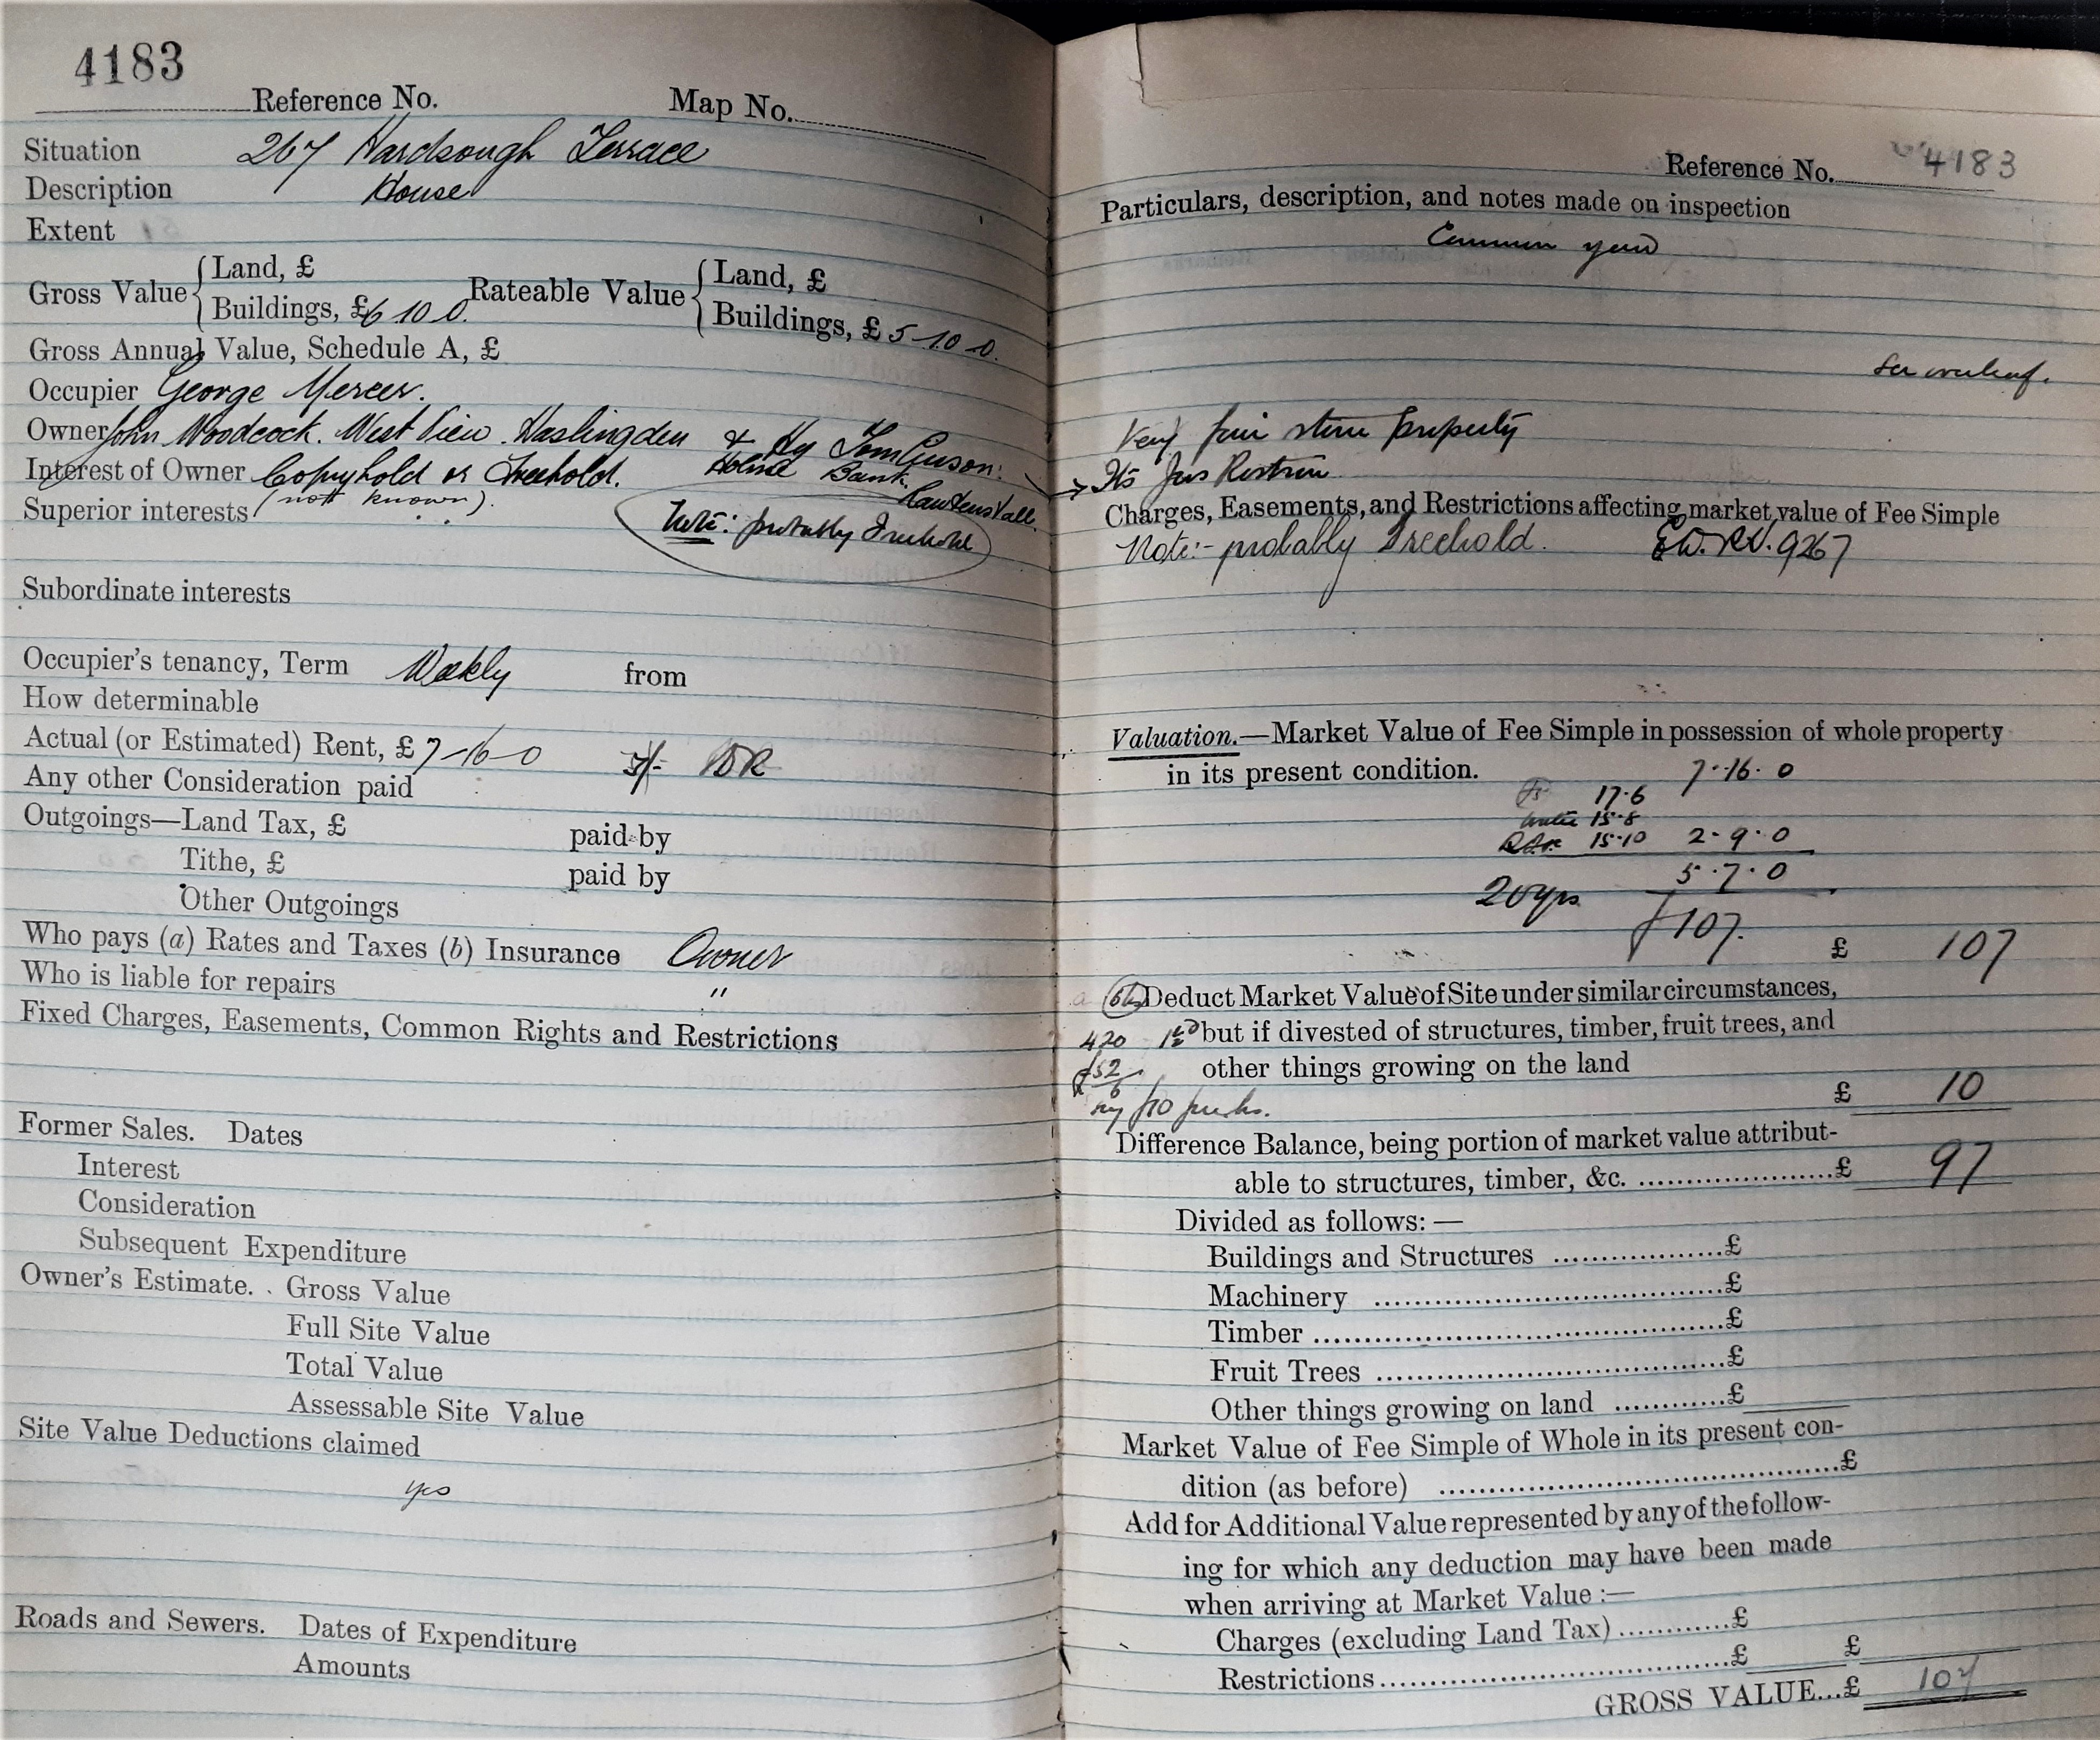 4183
Reference No. Map No.
Situation 267 Hardsough Terrace
Description House
Extent
Gross Value { Land, £
Buildings, £6 10 0
Rateable Value { Land, £
Buildings, £ 5-10 0.
Gross Annual Value, Schedule A, £
Occupier George Mercer.
Owner John Woodcock. West View. Haslingden & Hy Tomlinson:
Holme Bank.
Rawtenstall.
Interest of Owner Copyhold or Freehold.
(not known).
Superior interests
Note: probably Freehold
Subordinate interests
Occupier's tenancy, Term Weekly from
How determinable
Actual (or Estimated) Rent, £ 7-16-0 3/-
Any other Consideration paid
Outgoings—Land Tax, £ paid by
Tithe, £ paid by
Other Outgoings
Who pays (a) Rates and Taxes (b) Insurance Owner
Who is liable for repairs "
Fixed Charges, Easements, Common Rights and Restrictions
Former Sales. Dates
Interest
Consideration
Subsequent Expenditure
Owner's Estimate. Gross Value
Full Site Value
Total Value
Assessable Site Value
Site Value Deductions claimed
yes
Roads and Sewers. Dates of Expenditure
Amounts
Reference No. 4183
Particulars, description, and notes made on inspection
Common yard
See overleaf.
Very fair stone property
Charges, Easements, and Restrictions affecting market value of Fee Simple
Note:- probably Freehold. 9267
Valuation.—Market Value of Fee Simple in possession of whole property
in its present condition.
7.16.0
17.6
water 15.8
15.10 2.9.0
5.7.0
20 yrs
£107.
£ 107
Deduct Market Value of Site under similar circumstances,
but if divested of structures, timber, fruit trees, and
other things growing on the land
420
say £10
£ 10
Difference Balance, being portion of market value attribut-
able to structures, timber, &c. ....................£ 97
Divided as follows: —
Buildings and Structures .................£
Machinery ...................................£
Timber .......................................£
Fruit Trees ...................................£
Other things growing on land ............£
Market Value of Fee Simple of Whole in its present con-
dition (as before) .......................................£
Add for Additional Value represented by any of the follow-
ing for which any deduction may have been made
when arriving at Market Value :—
Charges (excluding Land Tax) ............£
Restrictions...................................£ £
GROSS VALUE...£ 107